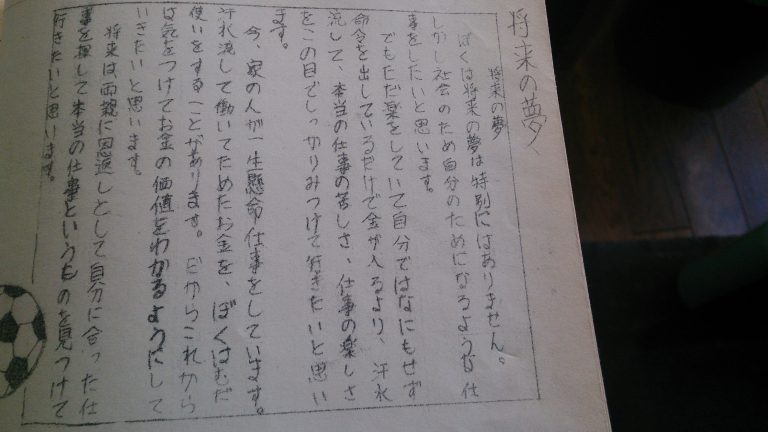 将来の夢
将来の夢
ぼくは将来の夢は特別にはありません。
しかし社会のため自分のためになるような仕
事をしたいと思います。
でもただ楽をしていて自分ではなにもせず
命令を出しているだけで金が入るより、汗水
流して、本当の仕事の苦しさ、仕事の楽しさ
をこの目でしっかりみつけて行きたいと思い
ます。
今、家の人が一生懸命仕事をしています。
汗水流して働いてためたお金を、ぼくはむだ
使いをすることがあります。だからこれから
は気をつけてお金の価値をわかるようにして
いきたいと思います。
将来は両親に恩返しとして自分に合った仕
事を探して本当の仕事というものを見つけて
行きたいと思います。